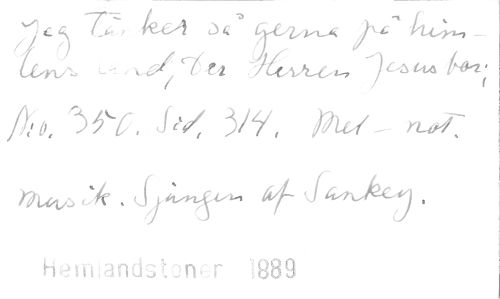 Jag tänker så gerna på him-
lens land, der Herren Jesus bor;
No. 350. Sid. 314. Mel-not.
musik. Sjungen af Sankey.
Hemlandstoner 1889